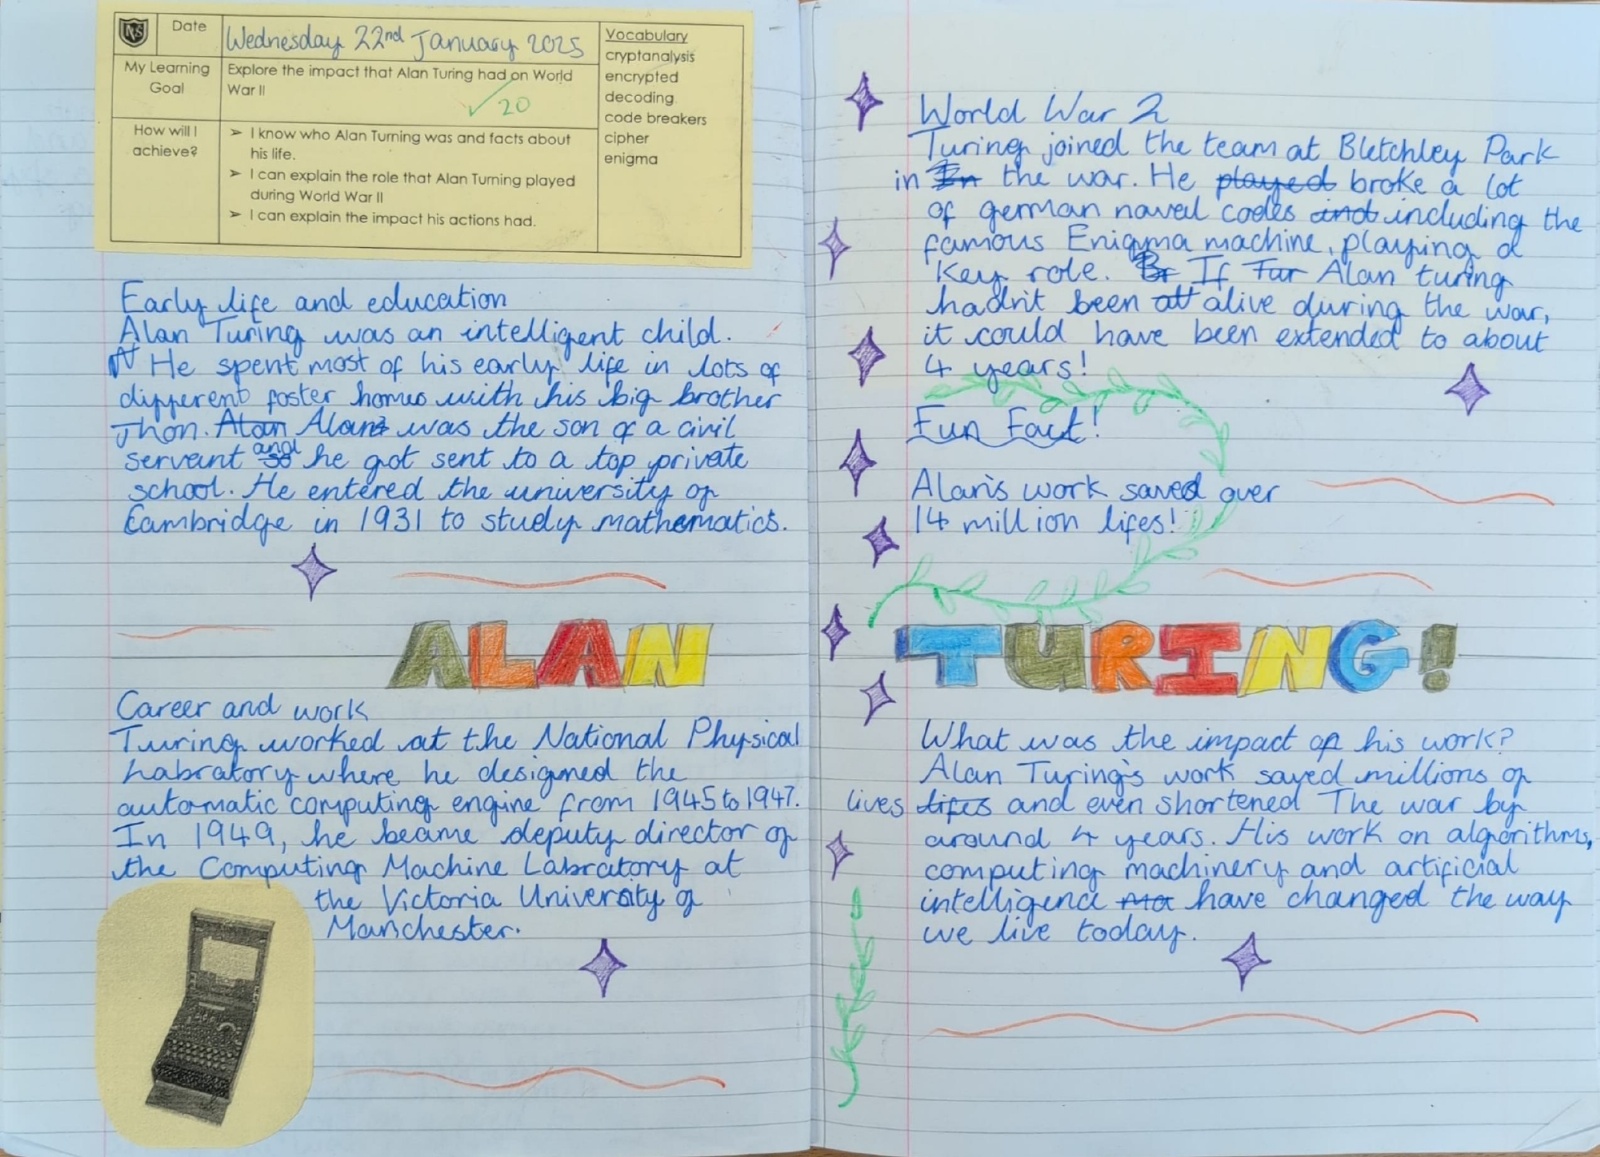 Date
Wednesday 22nd January 2025
My Learning Goal
Explore the impact that Alan Turing had on World War II
20
How will I achieve?
➢ I know who Alan Turning was and facts about his life.
➢ I can explain the role that Alan Turning played during World War II
➢ I can explain the impact his actions had.
Vocabulary
cryptanalysis
encrypted
decoding
code breakers
cipher
enigma
Early life and education
Alan Turing was an intelligent child.
He spent most of his early life in lots of
different foster homes with his big brother
Jhon. Alan Alan's was the son of a civil
servant and he got sent to a top private
school. He entered the university of
Cambridge in 1931 to study mathematics.
ALAN
Career and work
Turing worked at the National Physical
Labratory where he designed the
automatic computing engine from 1945 to 1947.
In 1949, he became deputy director of
the Computing Machine Labratory at
the Victoria University of
Manchester.
World War 2
Turing joined the team at Bletchley Park
in In the war. He played broke a lot
of german naval codes and including the
famous Enigma machine, playing a
Key role. If Tur Alan turing
hadn't been alive during the war,
it could have been extended to about
4 years!
Fun Fact!
Alan's work saved over
14 million lifes!
TURING!
What was the impact of his work?
Alan Turing's work saved millions of
lives lifes and even shortened The war by
around 4 years. His work on algorithms,
computing machinery and artificial
intelligence have changed the way
we live today.